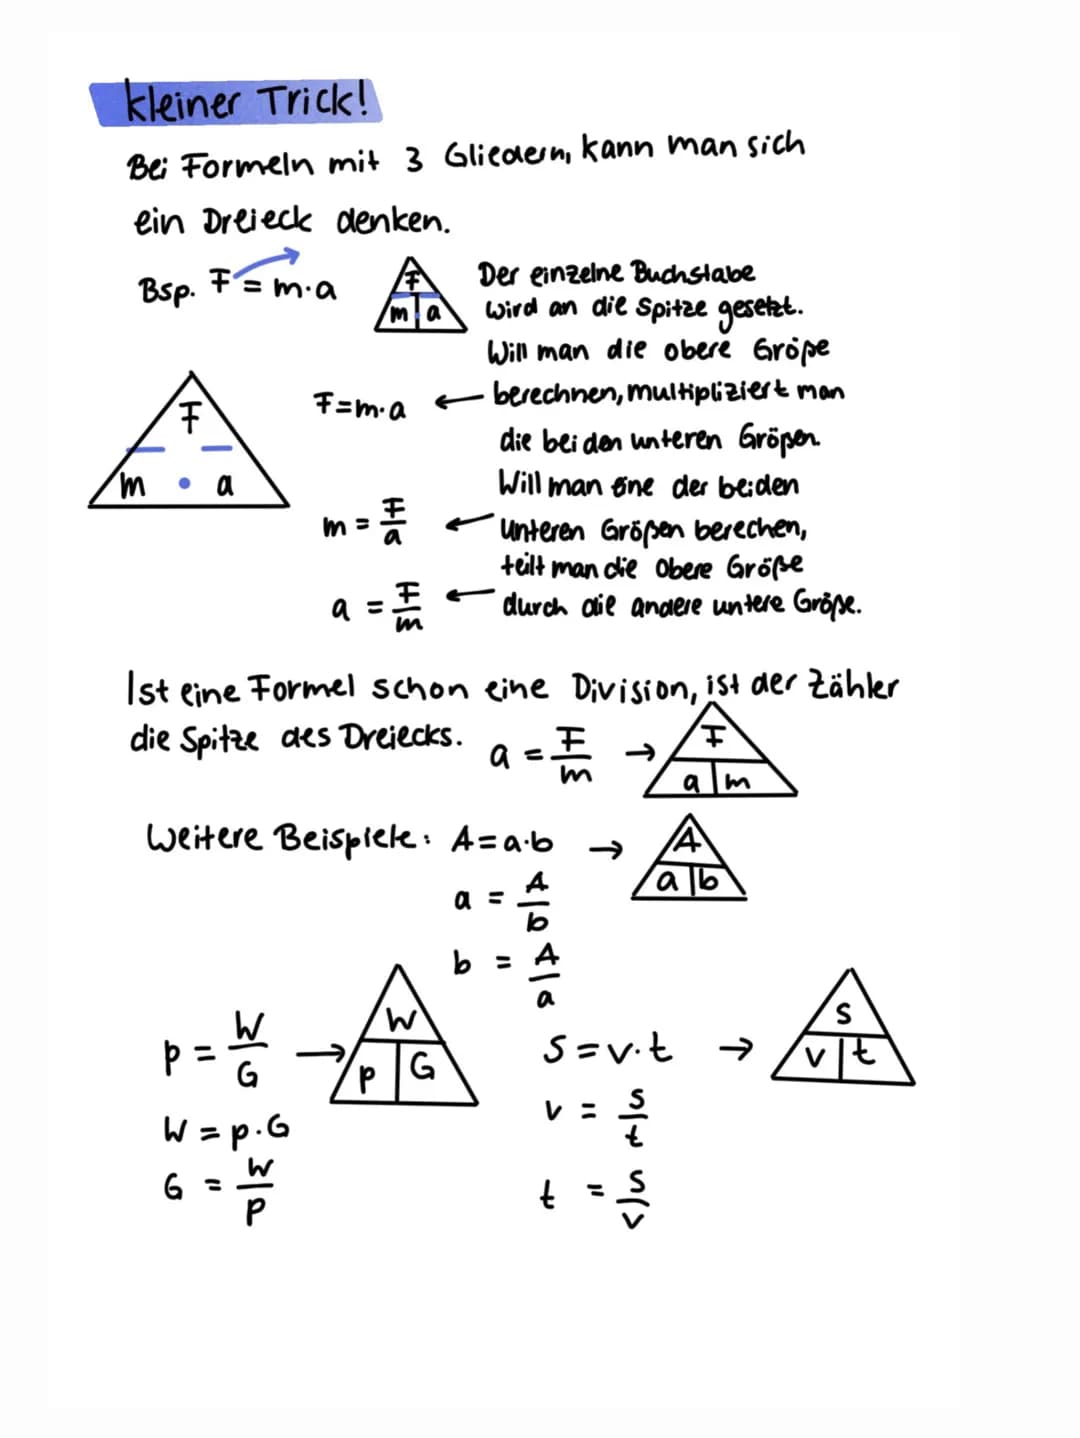 kleiner Trick!
Bei Formeln mit 3 Gliedern, kann man sich
ein Dreieck denken.
Bsp. F = m·a
F
m a
Der einzelne Buchstabe
wird an die Spitze gesetzt.
Will man die obere Größe
F=m·a ← berechnen, multipliziert man
die beiden unteren Größen.
F
m · a
Will man eine der beiden
m = F/a ← unteren Größen berechen,
teilt man die obere Größe
a = F/m ← durch die andere untere Größe.
Ist eine Formel schon eine Division, ist der Zähler
die Spitze des Dreiecks. a = F/m →
F
a m
Weitere Beispiele: A=a·b →
A
a b
a = A/b
b = A/a
p = W/G →
W
p G
W = p·G
G = W/p
S = v·t →
s
v t
v = s/t
t = s/v